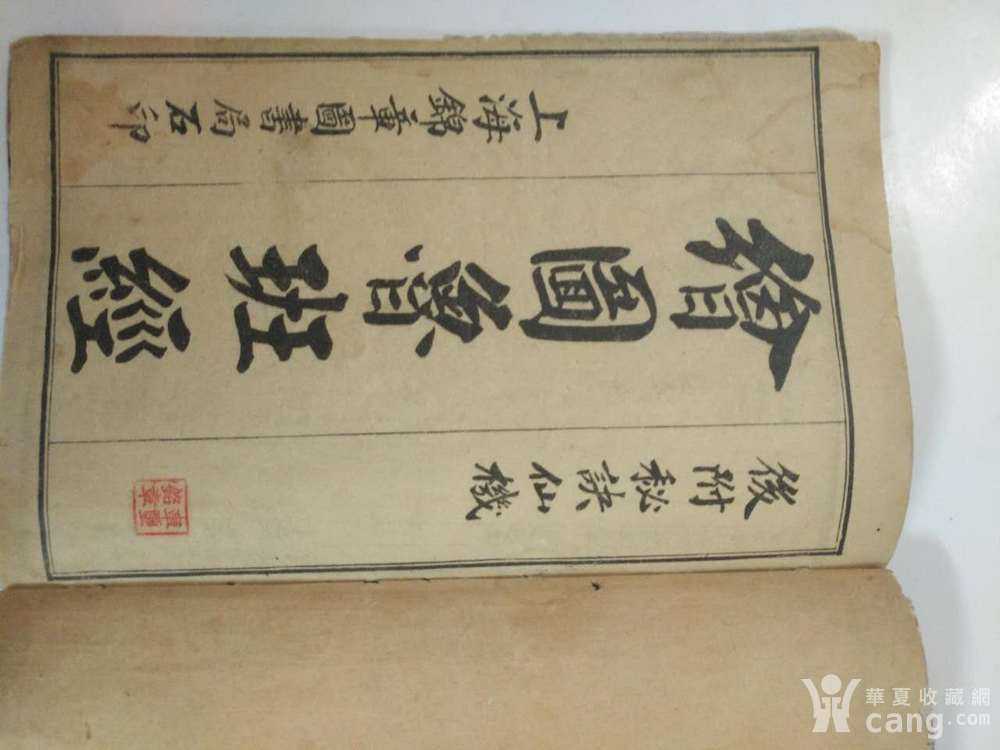 後附秘訣仙機
繪圖魯班經
上海錦章圖書局石印
華夏收藏網
cang.com